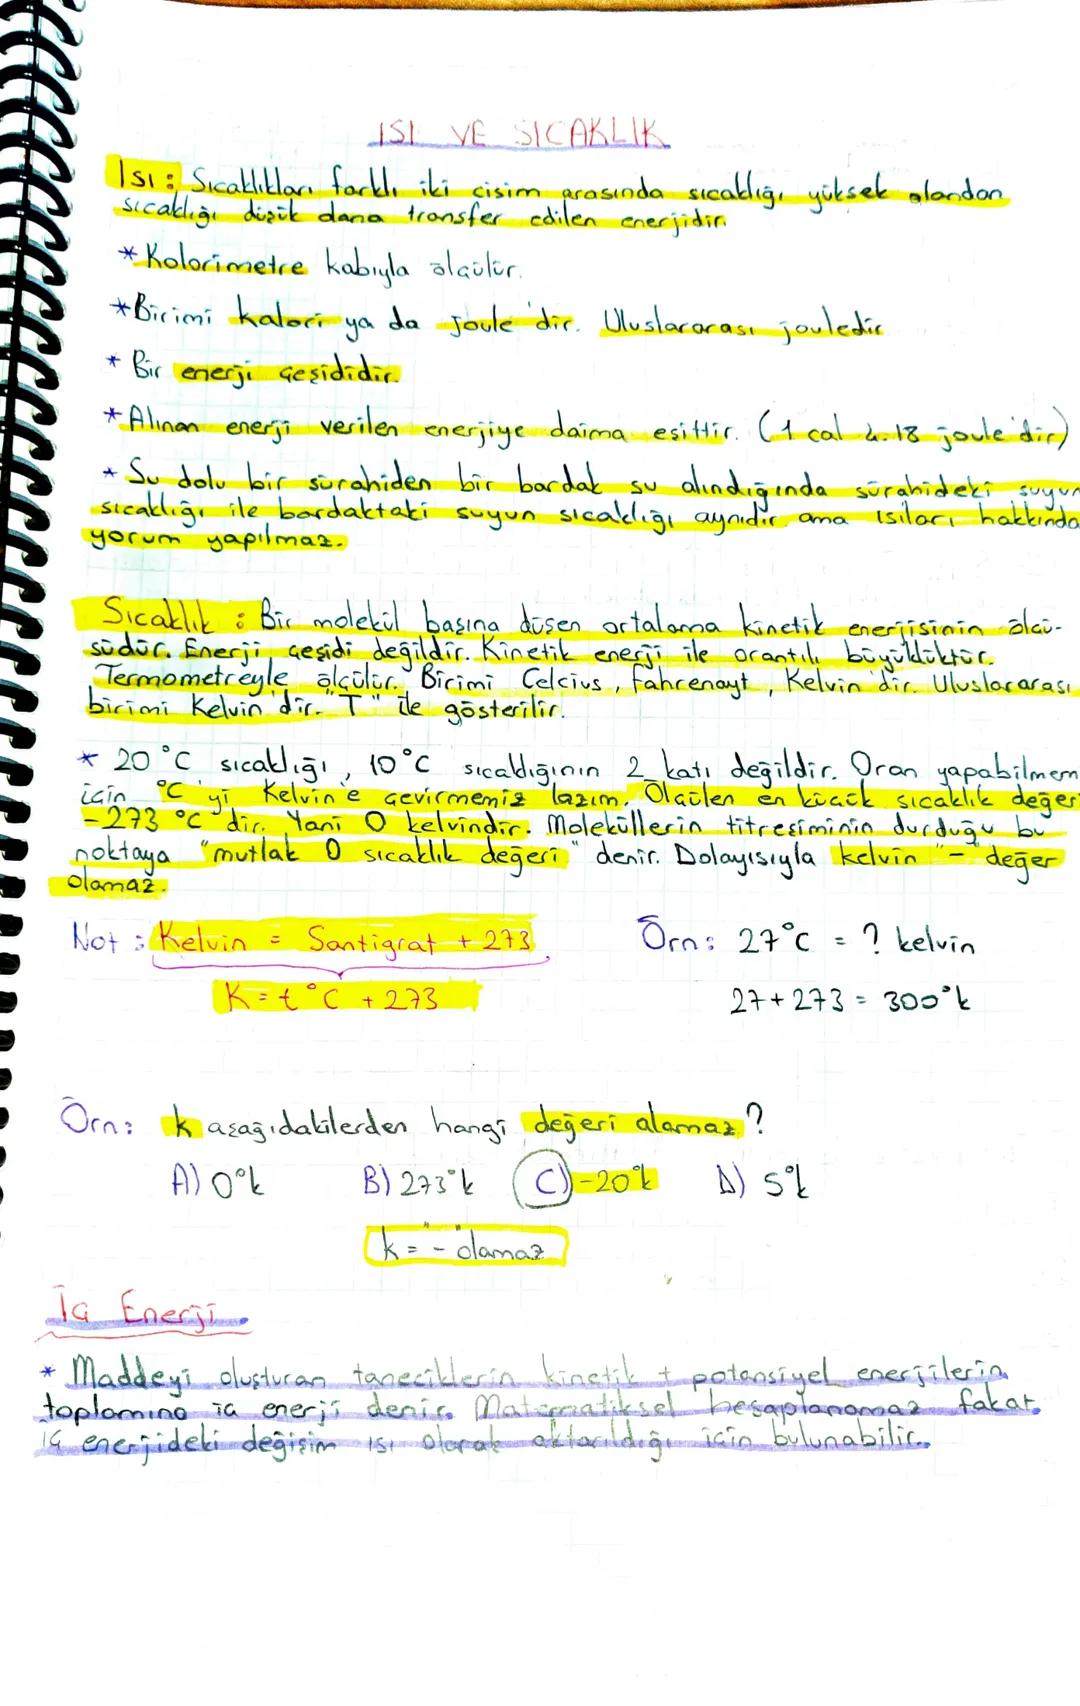 ISI VE SICAKLIK
Isı: Sıcaklıkları farklı iki cisim arasında sıcaklığı yüksek olandan
sıcaklığı düşük olana transfer edilen enerjidir.
* Kolorimetre kabıyla ölçülür.
* Birimi kalori ya da joule'dir. Uluslararası jouledir
* Bir enerji çeşididir.
* Alınan enerji verilen enerjiye daima eşittir. (1 cal 4.18 joule'dir)
* Su dolu bir sürahiden bir bardak su alındığında sürahideki suyun
sıcaklığı ile bardaktaki suyun sıcaklığı aynıdır ama ısıları hakkında
yorum yapılmaz.
Sıcaklık: Bir molekül başına düşen ortalama kinetik enerjisinin ölçü-
südür. Enerji çeşidi değildir. Kinetik enerji ile orantılı büyüklüktür.
Termometreyle ölçülür. Birimi Celcius, Fahrenayt, Kelvin'dir. Uluslararası
birimi Kelvin'dir. "T" ile gösterilir.
* 20 °C sıcaklığı, 10°C sıcaklığının 2 katı değildir. Oran yapabilmem
için °C'yi Kelvin'e çevirmemiz lazım. Ölçülen en küçük sıcaklık değeri
-273 °C'dir. Yani 0 kelvindir. Moleküllerin titreşiminin durduğu bu
noktaya "mutlak 0 sıcaklık değeri" denir. Dolayısıyla kelvin "-" değer
olamaz.
Not: Kelvin = Santigrat + 273 Örn: 27°C = ? kelvin
K = t °C + 273 27+273 = 300°k
Örn: k aşağıdakilerden hangi değeri alamaz?
A) 0°k B) 273°k C) -20°k D) 5°k
k = "-" olamaz
İç Enerji
* Maddeyi oluşturan taneciklerin kinetik + potansiyel enerjilerin
toplamına iç enerji denir. Matematiksel hesaplanamaz fakat
iç enerjideki değişim ısı olarak aktarıldığı için bulunabilir.